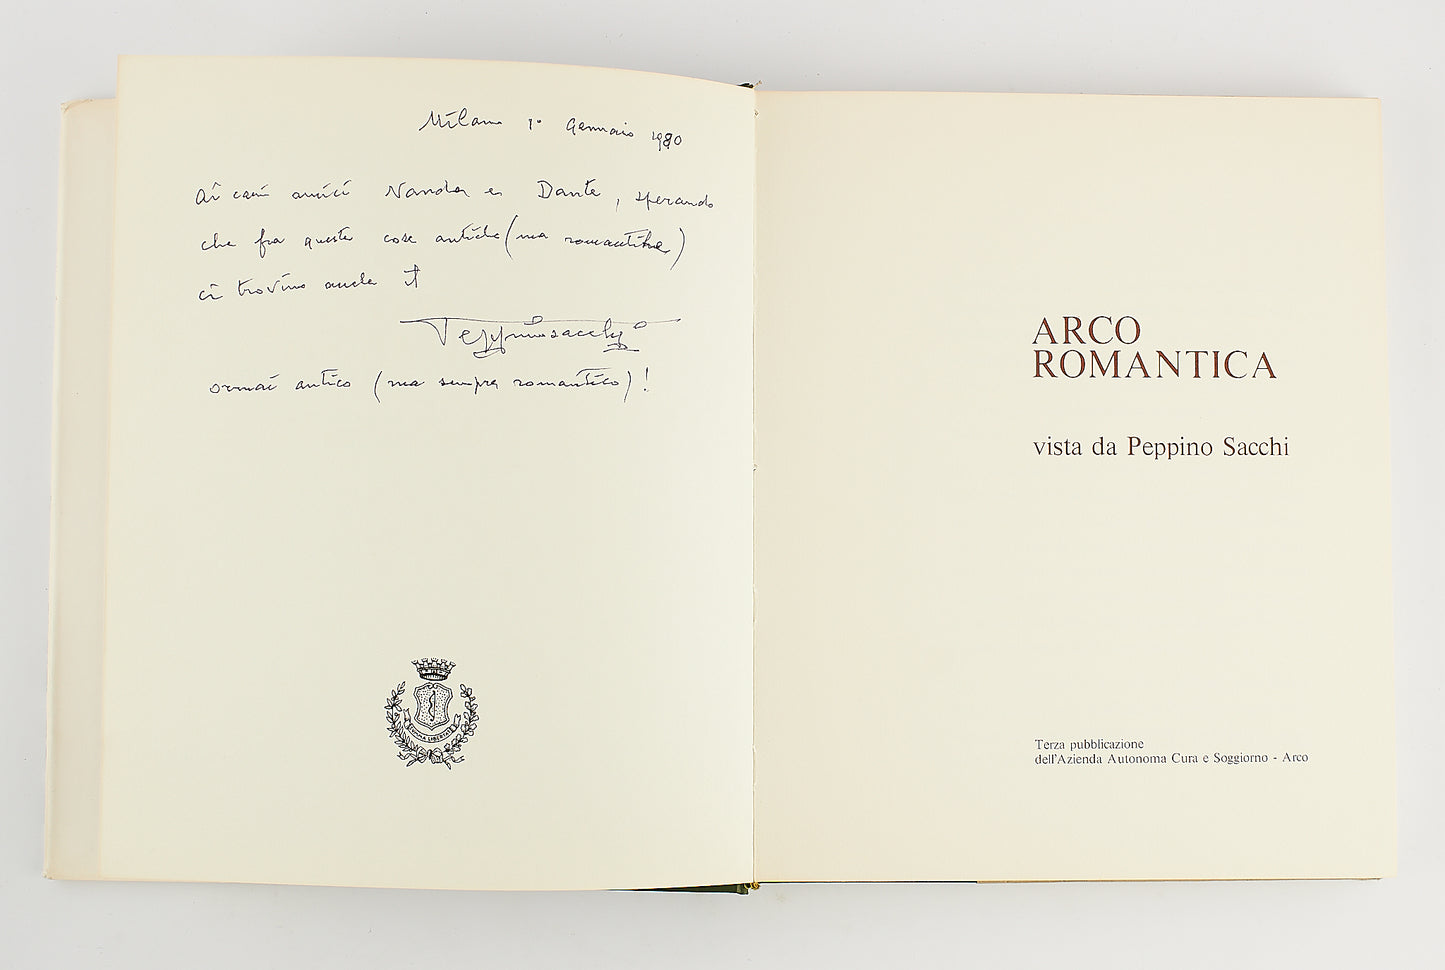 Milano 1° Gennaio 1980
Ai cari amici Nanda e Dante, sperando
che fra queste cose antiche (ma romantiche)
ci trovino anche il
Peppino Sacchi
ormai antico (ma sempre romantico)!
SUMMA LIBERTAS
ARCO
ROMANTICA
vista da Peppino Sacchi
Terza pubblicazione
dell'Azienda Autonoma Cura e Soggiorno - Arco